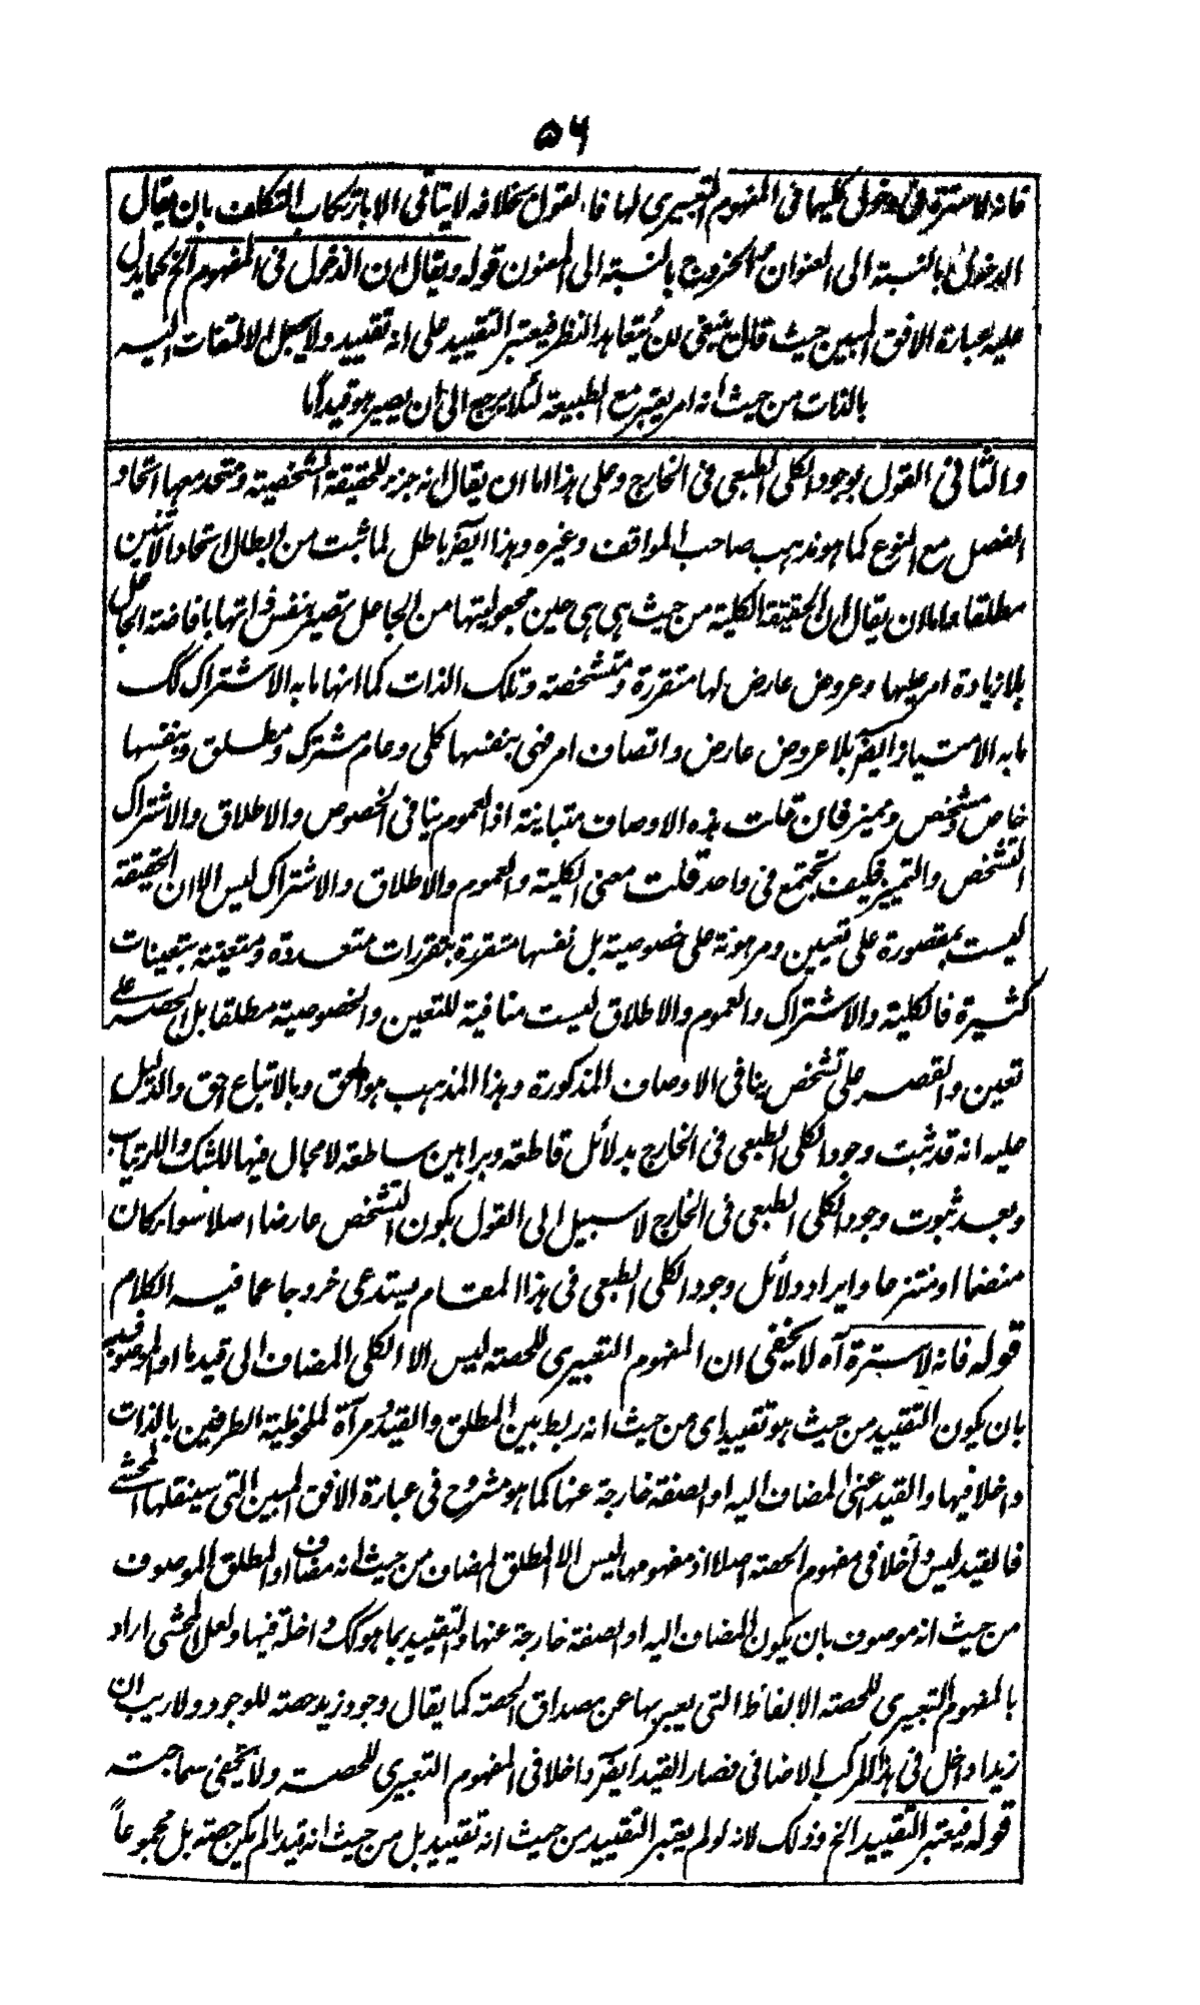 ۵۶
فانه لا سترة فی دخول کلیهما فی المفهوم التعبیری لها فالقول بخلافه لا یتأتی الا بارتکاب التکلف بان یقال
الدخول بالنسبة الی العنوان والخروج بالنسبة الی المعنون قوله ویقال ان الدخول فی المفهوم الخ کما یدل
علیه عبارة الافق المبین حیث قال ینبغی لک ان یتعاهد النظر فیعتبر التقیید علی انه تقیید ولا یجعل الالتفات الیه
بالذات من حیث انه امر یعتبر مع الطبیعة لئلا یرجع الی ان یصیر هو قیدا ما
والثانی القول بوجود الکلی الطبعی فی الخارج وعلی هذا اما ان یقال انه جزء للحقیقة الشخصیة ومتحد معها اتحاد
الفصل مع النوع کما هو مذهب صاحب المواقف وغیره وهذا ایضا باطل لما ثبت من ابطال اتحاد الاثنین
مطلقا واما ان یقال ان الحقیقة الکلیة من حیث هی هی حین مجعولیتها من الجاعل تصیر نفس ذاتها بافاضة الجاعل
بلا زیادة امر علیها وعروض عارض لها متقررة ومتشخصة وتلک الذات کما انها ما به الاشتراک کک
ما به الامتیاز ایضا بلا عروض عارض واتصاف امر فهی بنفسها کلی وعام مشترک ومطلق وبنفسها
خاص ومتشخص وممیز فان قلت هذه الاوصاف متباینة اذ العموم ینافی الخصوص والاطلاق والاشتراک
التشخص والتمییز فکیف تجتمع فی واحد قلت معنی الکلیة والعموم والاطلاق والاشتراک لیس الا ان الحقیقة
لیست بمقصورة علی تعین ومرهونة علی خصوصیة بل نفسها متقررة بتقررات متعددة ومتعینة بتعینات
کثیرة فالکلیة والاشتراک والعموم والاطلاق لیست منافیة للتعین والخصوصیة مطلقا بل الحصر علی
تعین والقصر علی تشخص ینافی الاوصاف المذکورة وهذا المذهب هو الحق وبالاتباع احق والدلیل
علیه انه قد ثبت وجود الکلی الطبعی فی الخارج بدلائل قاطعة وبراهین ساطعة لا مجال فیها للشک والارتیاب
وبعد ثبوت وجود الکلی الطبعی فی الخارج لا سبیل الی القول بکون التشخص عارضا اصلا سواء کان
منضما او منتزعا وایراد دلائل وجود الکلی الطبعی فی هذا المقام یستدعی خروجا عما فیه الکلام
قوله فانه لا سترة آه لا یخفی ان المفهوم التعبیری للحصة لیس الا الکلی المضاف الی قید ما او الموصوف به
بان یکون التقیید من حیث هو تقیید ای من حیث انه ربط بین المطلق والقید ومرآة لملحوظیة الطرفین بالذات
داخلا فیها والقید اعنی المضاف الیه او الصفة خارجة عنها کما هو مشروح فی عبارة الافق المبین التی سینقلها المحشی
فالقید لیس داخلا فی مفهوم الحصة اصلا اذ مفهومها لیس الا المطلق المضاف من حیث انه مضاف او المطلق الموصوف
من حیث انه موصوف بان یکون المضاف الیه او الصفة خارجة عنها والتقیید بما هو کک داخلة فیها ولعل المحشی اراد
بالمفهوم التعبیری للحصة الالفاظ التی یعبر بها عن مصداق الحصة کما یقال وجود زید حصة للوجود ولا ریب ان
زیدا داخل فی هذا المرکب الاضافی فصار القید ایضا داخلا فی المفهوم التعبیری للحصة ولا یخفی سماجته
قوله فیعتبر التقیید الخ وذلک لانه لو لم یعتبر التقیید من حیث انه تقیید بل من حیث انه قید ما لم یکن حصة بل مجموعاً